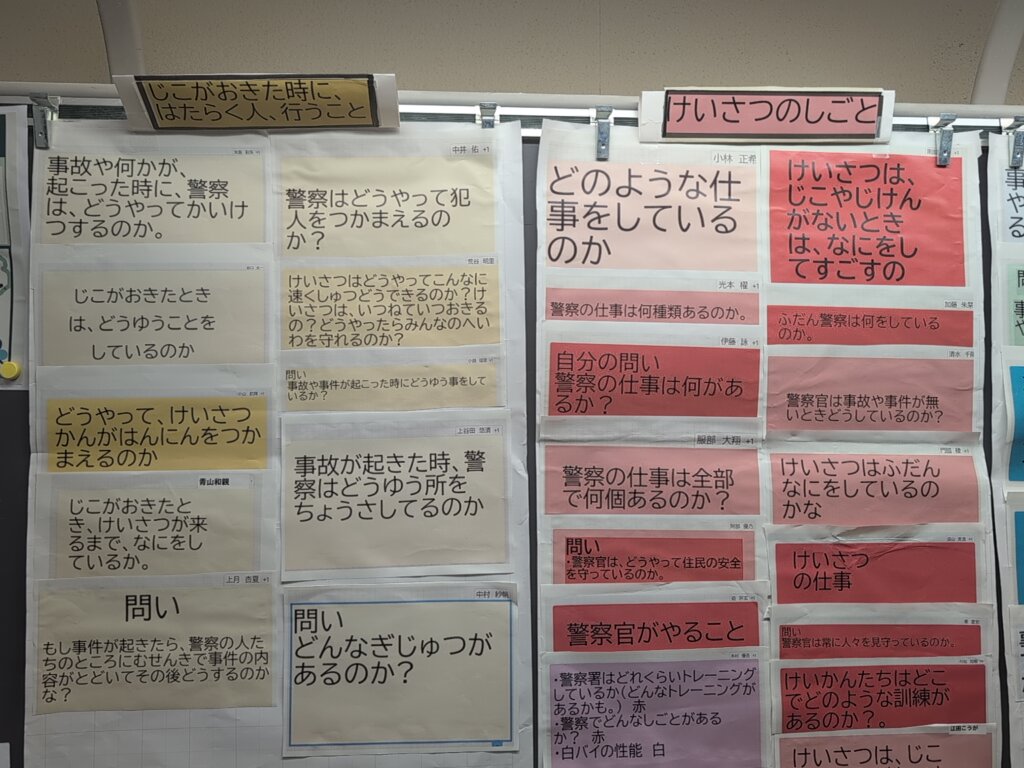 じこがおきた時に、
はたらく人、行うこと
事故や何かが、
起こった時に、警察
は、どうやってかいけ
つするのか。
じこがおきたとき
は、どうゆうことを
しているのか
どうやって、けいさつ
かんがはんにんをつか
まえるのか
青山和親
じこがおきたと
き、けいさつが来
るまで、なにをし
ているか。
上月 杏夏 +1
問い
もし事件が起きたら、警察の人た
ちのところにむせんきで事件の内
容がとどいてその後どうするのか
な?
中井 佑 +1
警察はどうやって犯
人をつかまえるの
か?
荒谷 明里
けいさつはどうやってこんなに
速くしゅつどうできるのか?け
いさつは、いつねていつおきる
の?どうやったらみんなのへい
わを守れるのか?
問い
事故や事件が起こった時にどうゆう事をして
いるか?
上谷田 悠清 +1
事故が起きた時、警
察はどうゆう所を
ちょうさしてるのか
中村 紗帆
問い
どんなぎじゅつが
あるのか?
けいさつのしごと
小林 正希
どのような仕
事をしている
のか
光本 櫂 +1
警察の仕事は何種類あるのか。
伊藤 詠 +1
自分の問い
警察の仕事は何があ
るか?
服部 大翔 +1
警察の仕事は全部
で何個あるのか?
阿部 優乃
問い
・警察官は、どうやって住民の安全
を守っているのか。
警察官がやること
・警察署はどれくらいトレーニング
しているか(どんなトレーニングが
あるかも。) 赤
・警察でどんなしごとがある
か? 赤
・白バイの性能 白
けいさつは、
じこやじけん
がないとき
は、なにをし
てすごすの
加藤 朱栞
ふだん警察は何をしている
のか。
清水 千尋
警察官は事故や事件が無
いときどうしているのか?
けいさつはふだん
なにをしているの
かな
けいさつ
の仕事
問い
警察官は常に人々を見守っているのか。
けいかんたちはどこ
でどのような訓練が
あるのか?。
江田こうが
けいさつは、じこ